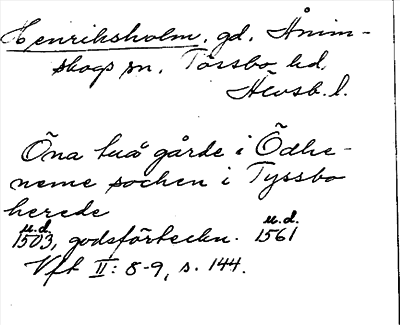 Henriksholm. gd. Ånim-
skogs sn. Tössbo hd.
Älvsb. l.
Öna tuå gårde i Ödhe-
neme sochen i Tyssbo
herede
u.d. u.d.
1503, godsförteckn. 1561
Vft II: 8-9, s. 144.